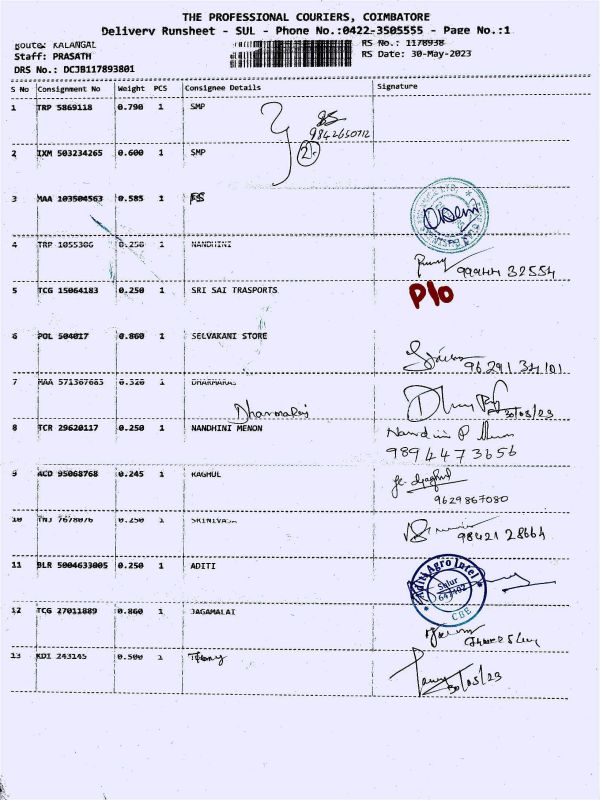 THE PROFESSIONAL COURIERS, COIMBATORE
Delivery Runsheet - SUL - Phone No.:0422-3505555 - Page No.:1
Route: KALANGAL
RS No.: 1178938
Staff: PRASATH
RS Date: 30-May-2023
DRS No.: DCJB117893801
S No Consignment No Weight PCS Consignee Details Signature
1 TRP 5869118 0.790 1 SMP
9842650712
2 IXM 503234265 0.600 1 SMP
2
3 MAA 103504563 0.585 1 FS
4 TRP 1055306 0.250 1 NANDHINI
99944 32554
5 TCG 15064183 0.250 1 SRI SAI TRASPORTS P/o
6 POL 504017 0.860 1 SELVAKANI STORE
7 MAA 571367683 0.320 1 DHARMARAJ
Dharmaraj
30/05/23
8 TCR 29620117 0.250 1 NANDHINI MENON
9894473656
9 ACD 95068768 0.245 1 RAGHUL
9629867080
10 TNJ 7678076 0.250 1 SRINIVASA
98421 28664
11 BLR 5004633005 0.250 1 ADITI
Aditi Agro Intel
Sulur
641402
CBE
12 TCG 27011889 0.860 1 JAGAMALAI
13 KDI 243145 0.500 1 Tony
30/05/23